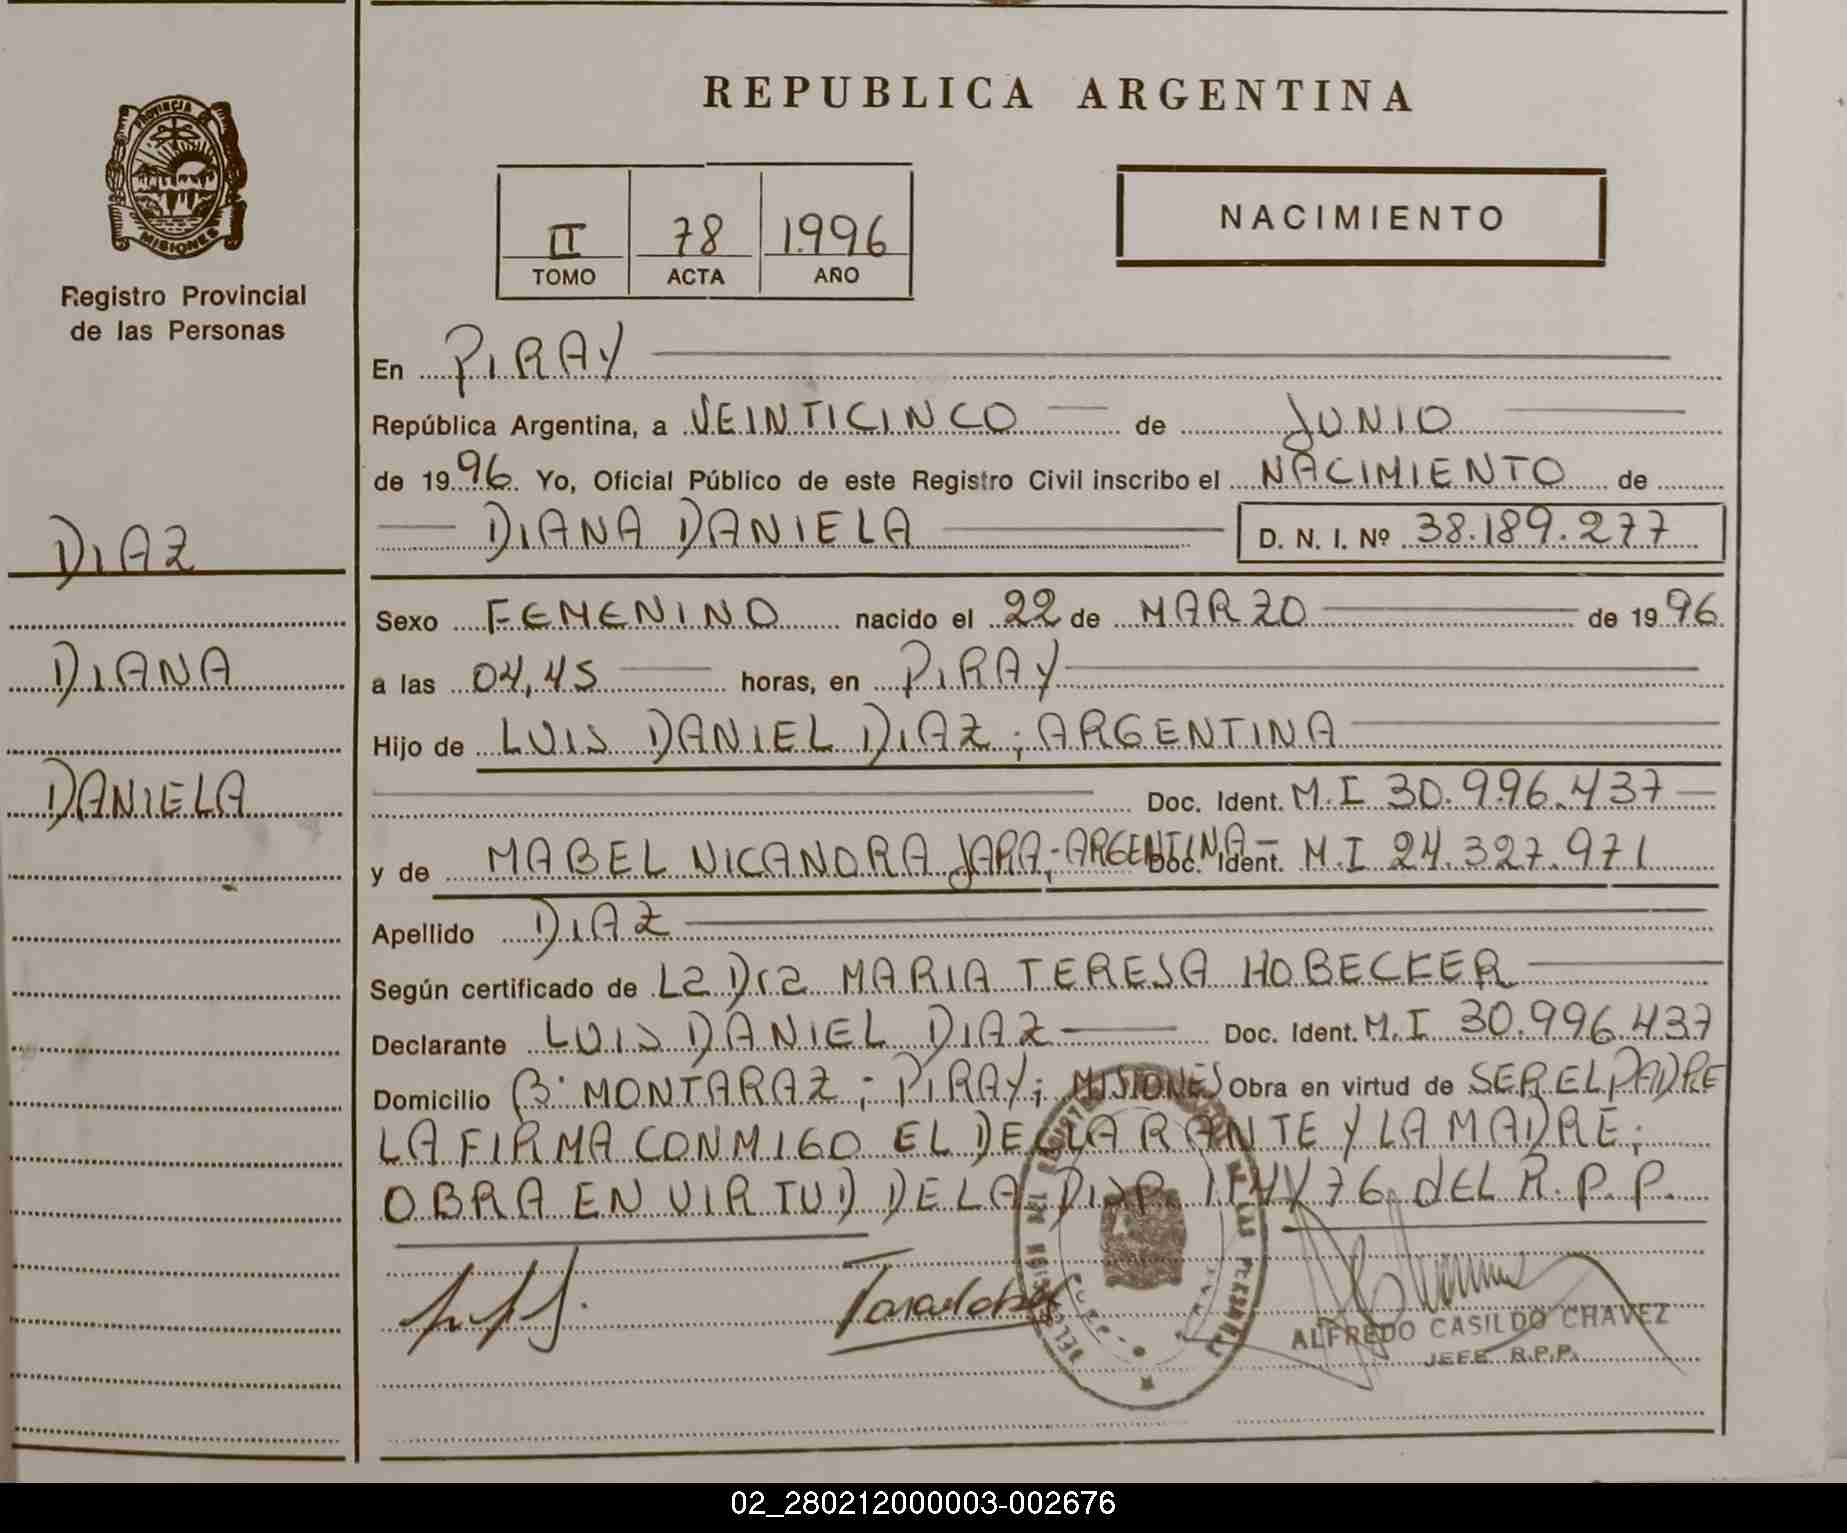 REPUBLICA ARGENTINA
PROVINCIA DE
MISIONES
Registro Provincial
de las Personas
II 78 1.996
TOMO ACTA AÑO
NACIMIENTO
En PIRAY
República Argentina, a VEINTICINCO de JUNIO
de 1996. Yo, Oficial Público de este Registro Civil inscribo el NACIMIENTO de
DIANA DANIELA D. N. I. Nº 38.189.277
DIAZ
DIANA
DANIELA
Sexo FEMENINO nacido el 22 de MARZO de 1996
a las 04,45 horas, en PIRAY
Hijo de LUIS DANIEL DIAZ; ARGENTINA
Doc. Ident. M.I 30.996.437
y de MABEL NICANORA JARA; ARGENTINA Doc. Ident. M.I 24.327.971
Apellido DIAZ
Según certificado de La Dra MARIA TERESA HOBECKER
Declarante LUIS DANIEL DIAZ Doc. Ident. M.I 30.996.437
Domicilio Bº MONTARAZ; PIRAY; MISIONES Obra en virtud de SER EL PADRE
LA FIRMA CONMIGO EL DECLARANTE Y LA MADRE;
OBRA EN VIRTUD DE LA DISP. 174/76 dEL R.P.P.
ALFREDO CASILDO CHAVEZ
JEFE R.P.P.
02_280212000003-002676